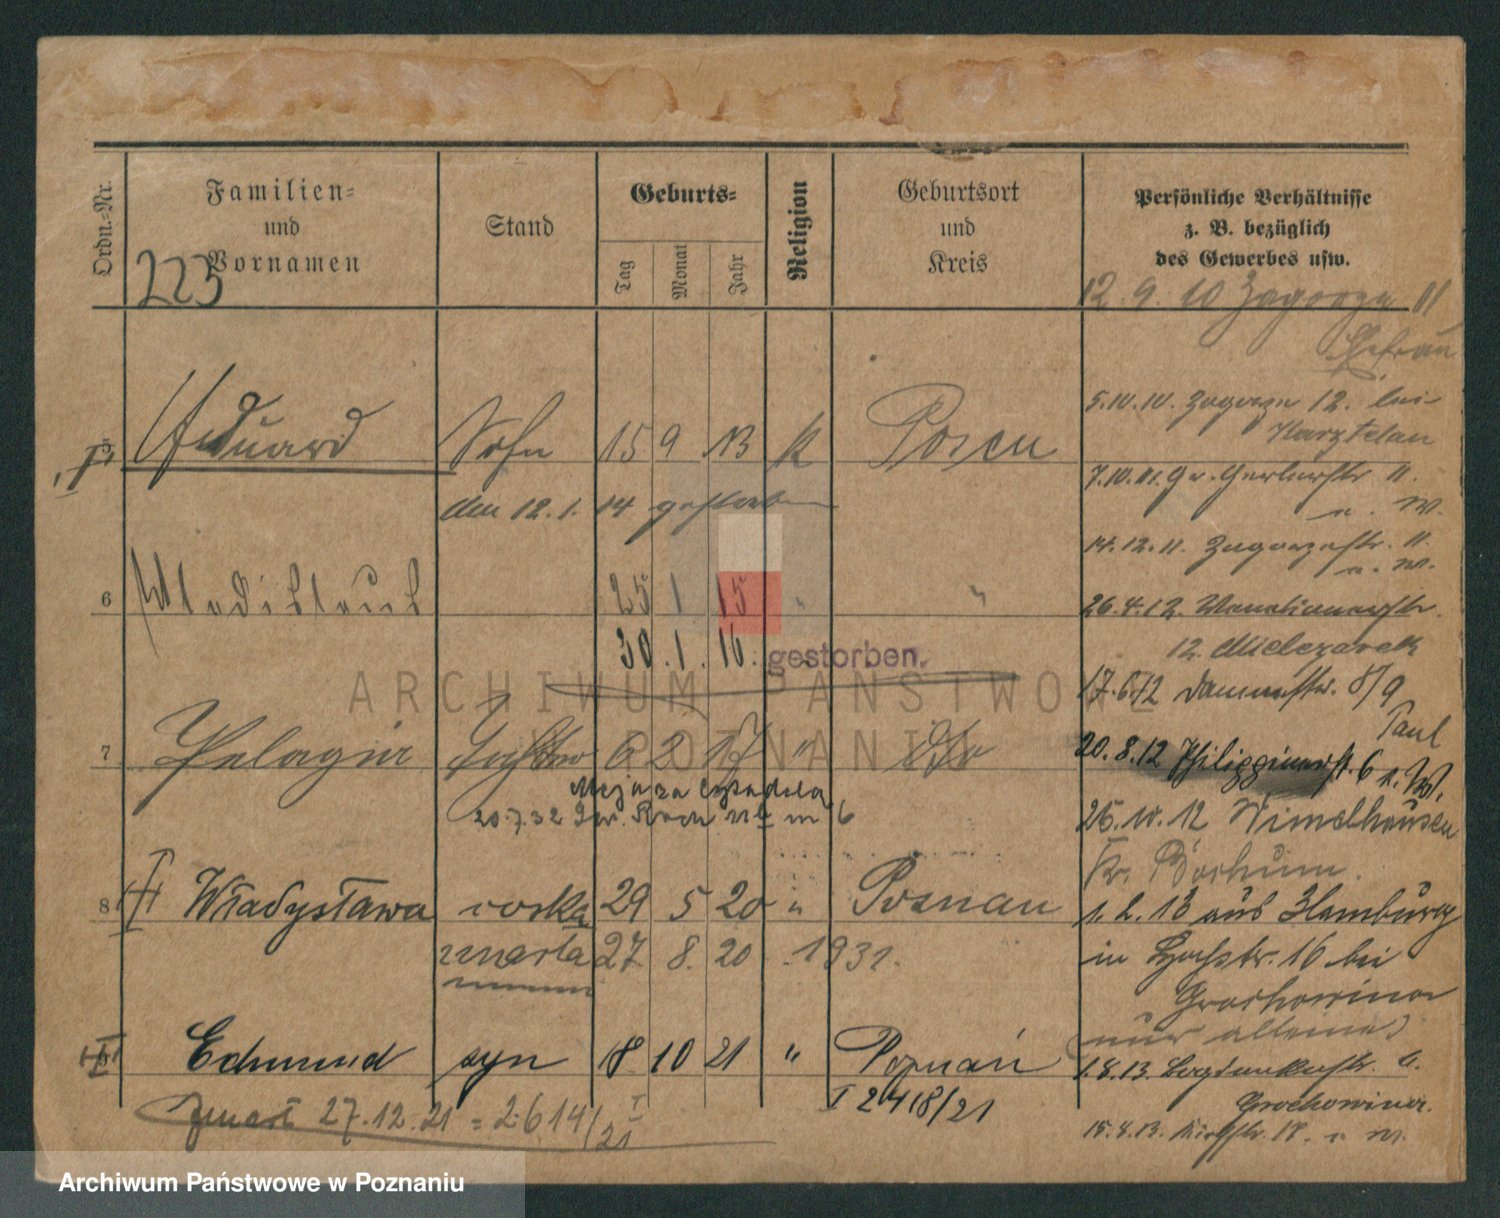 Ordn.=Nr.
Familien=
und
Vornamen
223
Stand
Geburts=
Tag
Monat
Jahr
Religion
Geburtsort
und
Kreis
Persönliche Verhältnisse
z. B. bezüglich
des Gewerbes usw.
Eduard Sohn 15 9 13 k Posen
den 12. 1. 14 gestorben
6 Wladislaus 25 1 15 " "
30. 1. 16. gestorben.
7 Pelagia Tochter 6 2 17 " dto
20.7.32
8 Władysława córka 29 5 20 " Poznań
umarła 27. 8. 20 1931.
Edmund syn 18 10 21 " Poznań
I 2418/21
zmarł 27.12.21 = 2614/21 I
12. 9. 10 Zagorze 11
Ehefrau
5.10.10. Zagorze 12. bei
7.10.11. Gr. Gerberstr. 11.
u. W.
14.12.11. Zagorzestr. 11.
u. W.
26.4.12.
12.
17.6.12 Dammstr. 8/9
Paul
20.8.12 Philippinerstr. 6 u. W.
25.10.12 Wimelhausen
Kr. Bochum.
1. 2. 13 aus Hamburg
in 16 bei
Grochowina
(nur alleine)
1.8.13.
Grochowina.
15.8.13.
ARCHIWUM PAŃSTWOWE
W POZNANIU
Archiwum Państwowe w Poznaniu